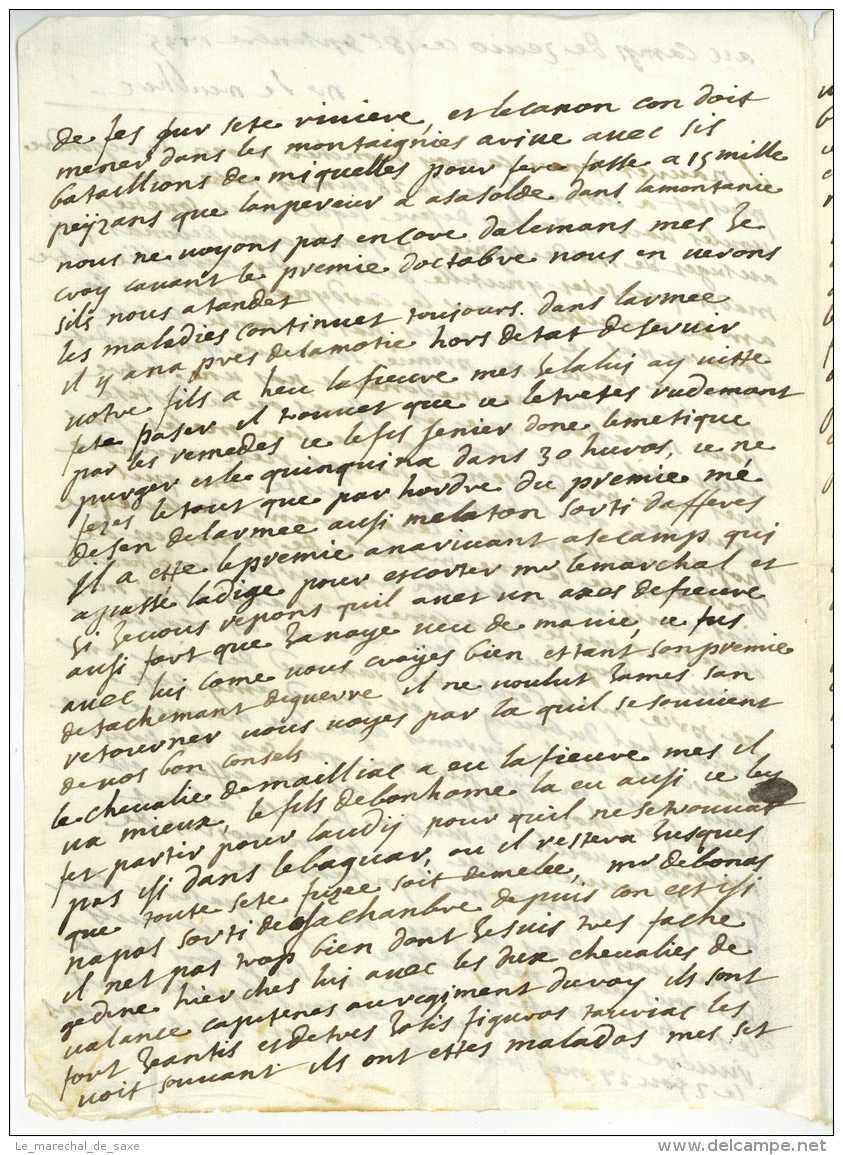 de ses sur sete riviere, et le canon con doit
mener dans les montaignies arive avec sis
bataillions de miquelles pour fere fasse a 15 mille
peijzans que lanpereur a asasolde dans lamontanie
nous ne voyons pas encore dalemans mes je
croy cavant le premie doctabre nous en verons
sils nous atandet
les maladies continuet toujours dans larmee
il y ana pres delamotie hors detat deservir
votre fils a heu la fieuvre mes jelalui ay vitte
fete paser il trouvet que ce letretes rudemant
par les remedes ce le fis senier done lemetique
purger et le quinquina dans 30 hures, ce ne
feres le tout que par hordre du premie mé
desen delarmee ausi melaton sorti dafferes
il a ette le premie anarivant asecamp qui
apasse ladige pour escorter mr lemarchal et
si jevous repons quil avet un axes defieuvre
ausi fort que janaye veu de mavie, ce fus
avec lui come vous croyes bien ettant son premie
detachemant deguerre il ne voulut james san
retourner vous voyes par la quil sesouvient
de vos bon consels
le chevalie demailliac a eu la fieuvre mes il
va mieux, le fils debonhome la eu ausi ce les
fet partir pour laudij pour quil ne setrouvat
pas isi dans lebaguar, ou il restera jusques
que toute sete fuzee soit demelee, mr debonas
napas sorti de sachanbre depuis con est isi
il net pas trop bien dont jesuis tres fache
gedine hier ches lui avec les dux chevalies de
valance capitenes au regiment du roy ils sont
fort jeantis et detres jolis figures tauriac les
voit souvant ils ont ettes malades mes set
Le_marechal_de_saxe
delcampe.net